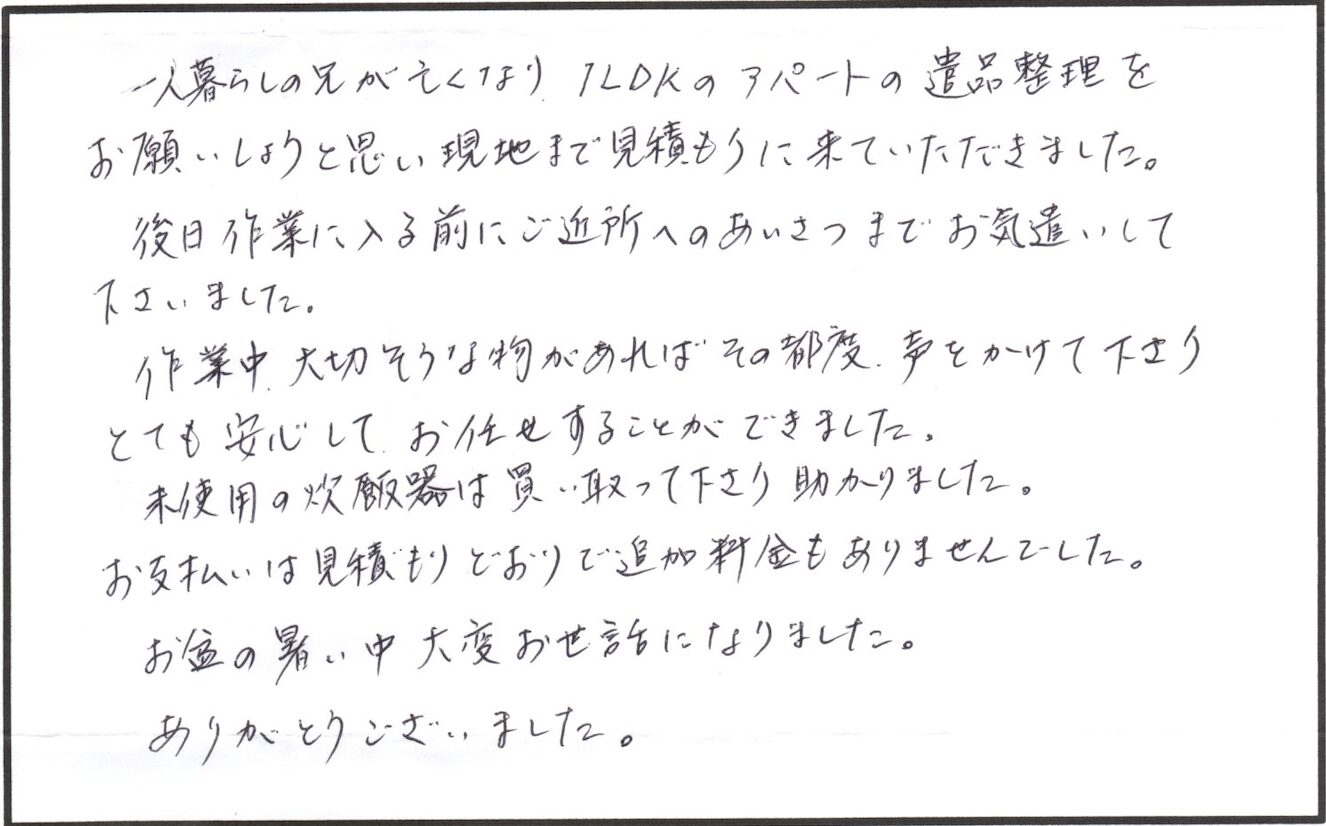 一人暮らしの兄が亡くなり、1LDKのアパートの遺品整理を
お願いしようと思い現地まで見積もりに来ていただきました。
後日作業に入る前にご近所へのあいさつまでお気遣いして
下さいました。
作業中、大切そうな物があればその都度、声をかけて下さり
とても安心してお任せすることができました。
未使用の炊飯器は買い取って下さり助かりました。
お支払いは見積もりどおりで追加料金もありませんでした。
お盆の暑い中大変お世話になりました。
ありがとうございました。